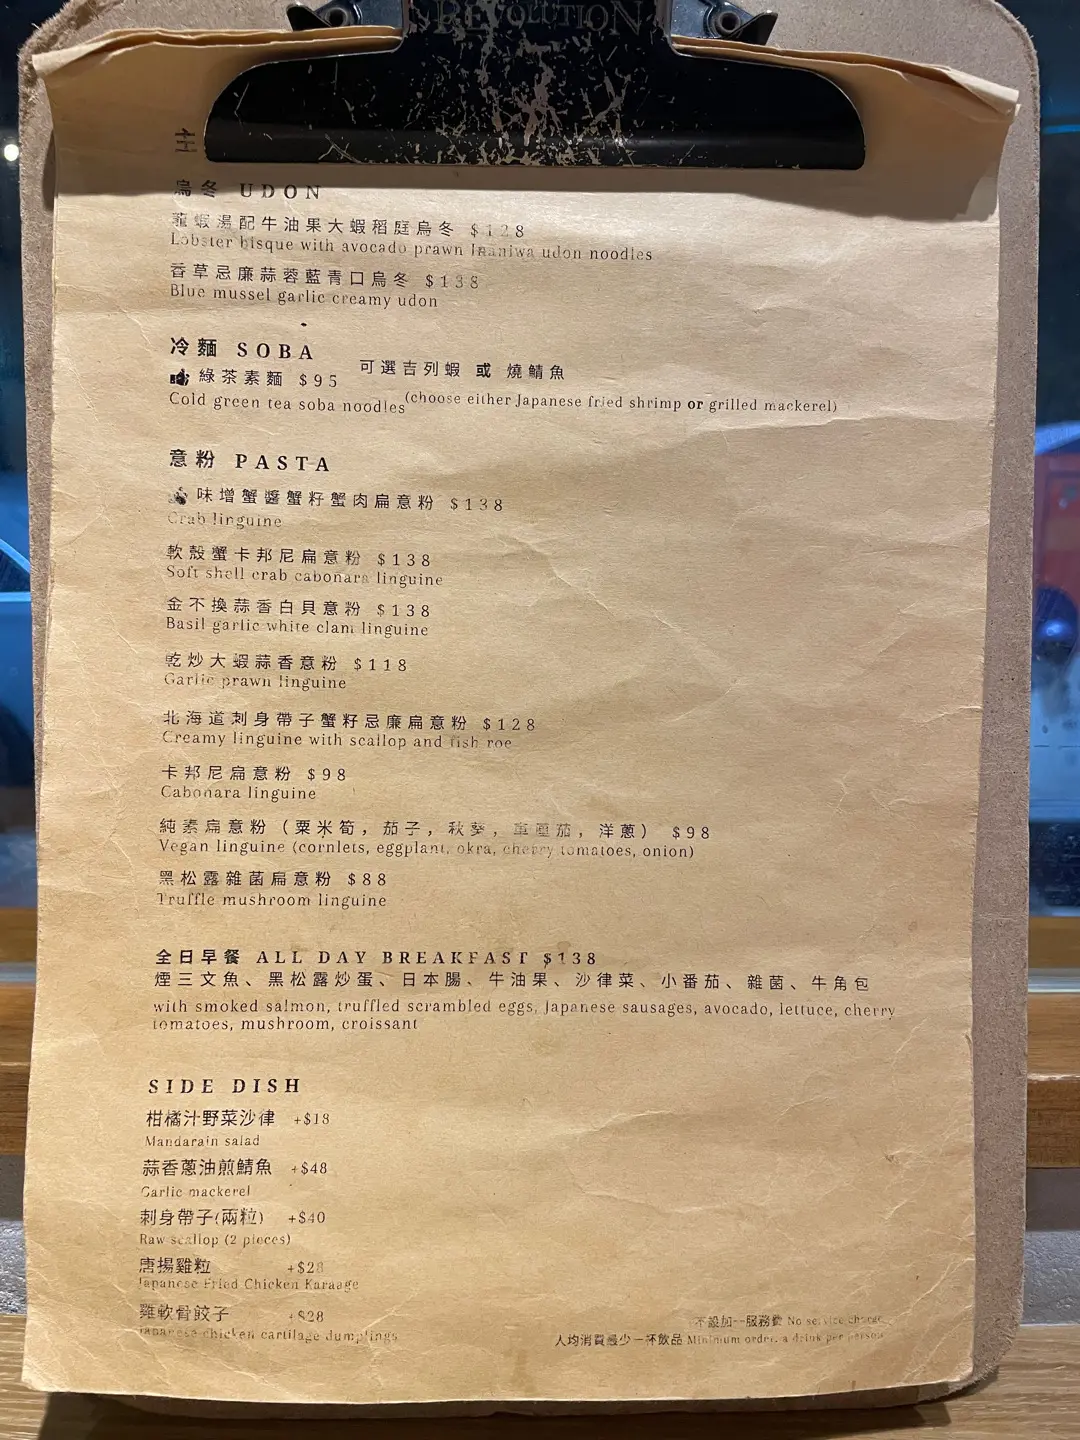 REVOLUTION
主
烏冬 UDON
龍蝦湯配牛油果大蝦稻庭烏冬 $128
Lobster bisque with avocado prawn Inaniwa udon noodles
香草忌廉蒜蓉藍青口烏冬 $138
Blue mussel garlic creamy udon
冷麵 SOBA
綠茶素麵 $95 可選吉列蝦 或 燒鯖魚
Cold green tea soba noodles (choose either Japanese fried shrimp or grilled mackerel)
意粉 PASTA
味增蟹醬蟹籽蟹肉扁意粉 $138
Crab linguine
軟殼蟹卡邦尼扁意粉 $138
Soft shell crab cabonara linguine
金不換蒜香白貝意粉 $138
Basil garlic white clam linguine
乾炒大蝦蒜香意粉 $118
Garlic prawn linguine
北海道刺身帶子蟹籽忌廉扁意粉 $128
Creamy linguine with scallop and fish roe
卡邦尼扁意粉 $98
Cabonara linguine
純素扁意粉（粟米筍，茄子，秋葵，車厘茄，洋蔥） $98
Vegan linguine (cornlets, eggplant, okra, cherry tomatoes, onion)
黑松露雜菌扁意粉 $88
Truffle mushroom linguine
全日早餐 ALL DAY BREAKFAST $138
煙三文魚、黑松露炒蛋、日本腸、牛油果、沙律菜、小番茄、雜菌、牛角包
with smoked salmon, truffled scrambled eggs, Japanese sausages, avocado, lettuce, cherry
tomatoes, mushroom, croissant
SIDE DISH
柑橘汁野菜沙律 +$18
Mandarain salad
蒜香蔥油煎鯖魚 +$48
Garlic mackerel
刺身帶子(兩粒) +$40
Raw scallop (2 pieces)
唐揚雞粒 +$28
Japanese Fried Chicken Karaage
雞軟骨餃子 +$28
Japanese chicken cartilage dumplings
不設加一服務費 No service charge
人均消費最少一杯飲品 Minimum order: a drink per person